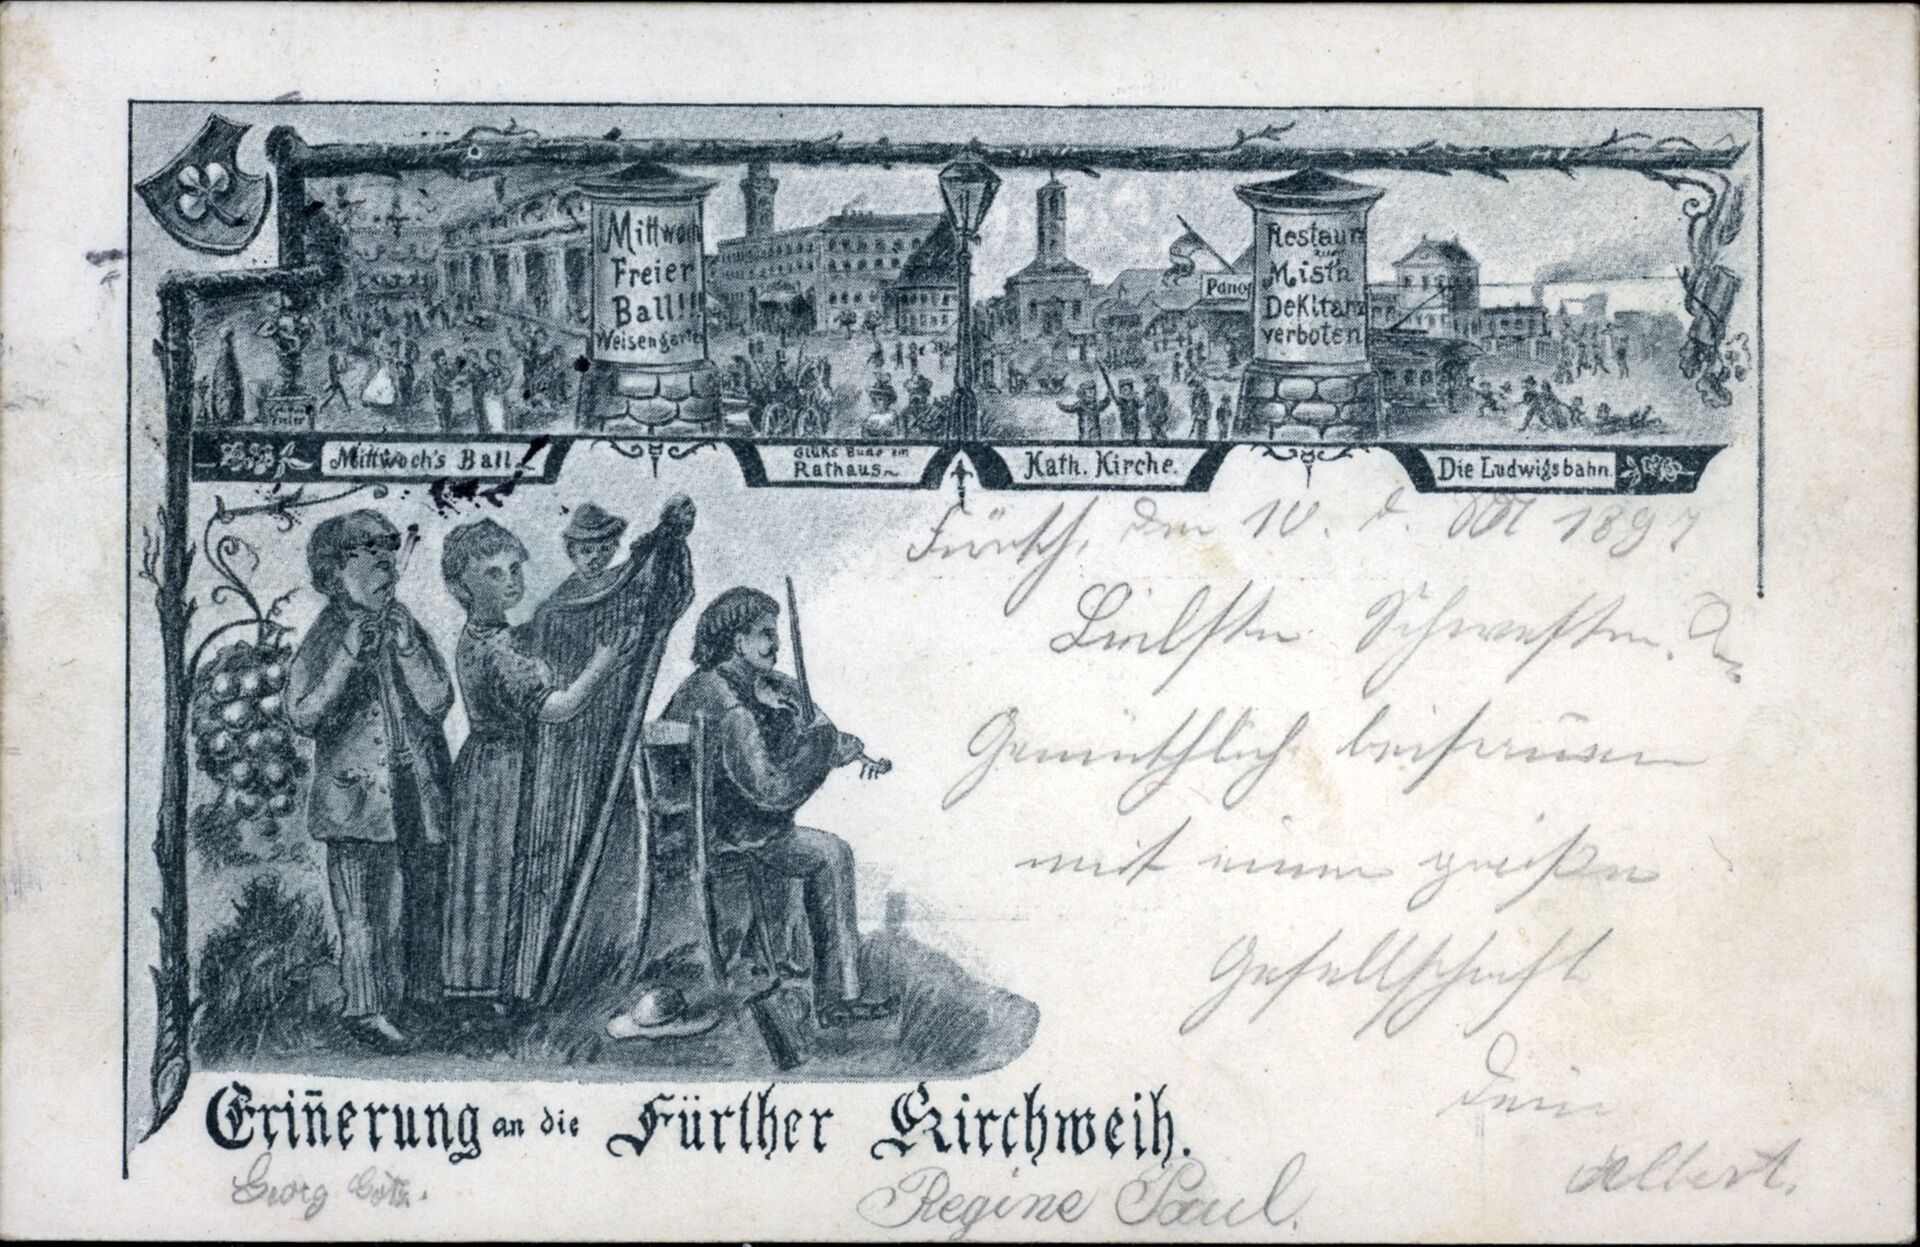 Mittwoch
Freier
Ball!!!
Weisengarten
Restaur
zur
Misth
DeKltanz
verboten
Panor
Mittwoch's Ball
Glüks Bude am
Rathaus
Kath. Kirche.
Die Ludwigsbahn
Fürth, den 10. d. Okt 1897
Liebste Schwester.
Gemüthlich
mit einer großen
Gesellschaft
Dein
Albert.
Eriñerung an die Fürther Kirchweih.
Georg
Regine Paul.